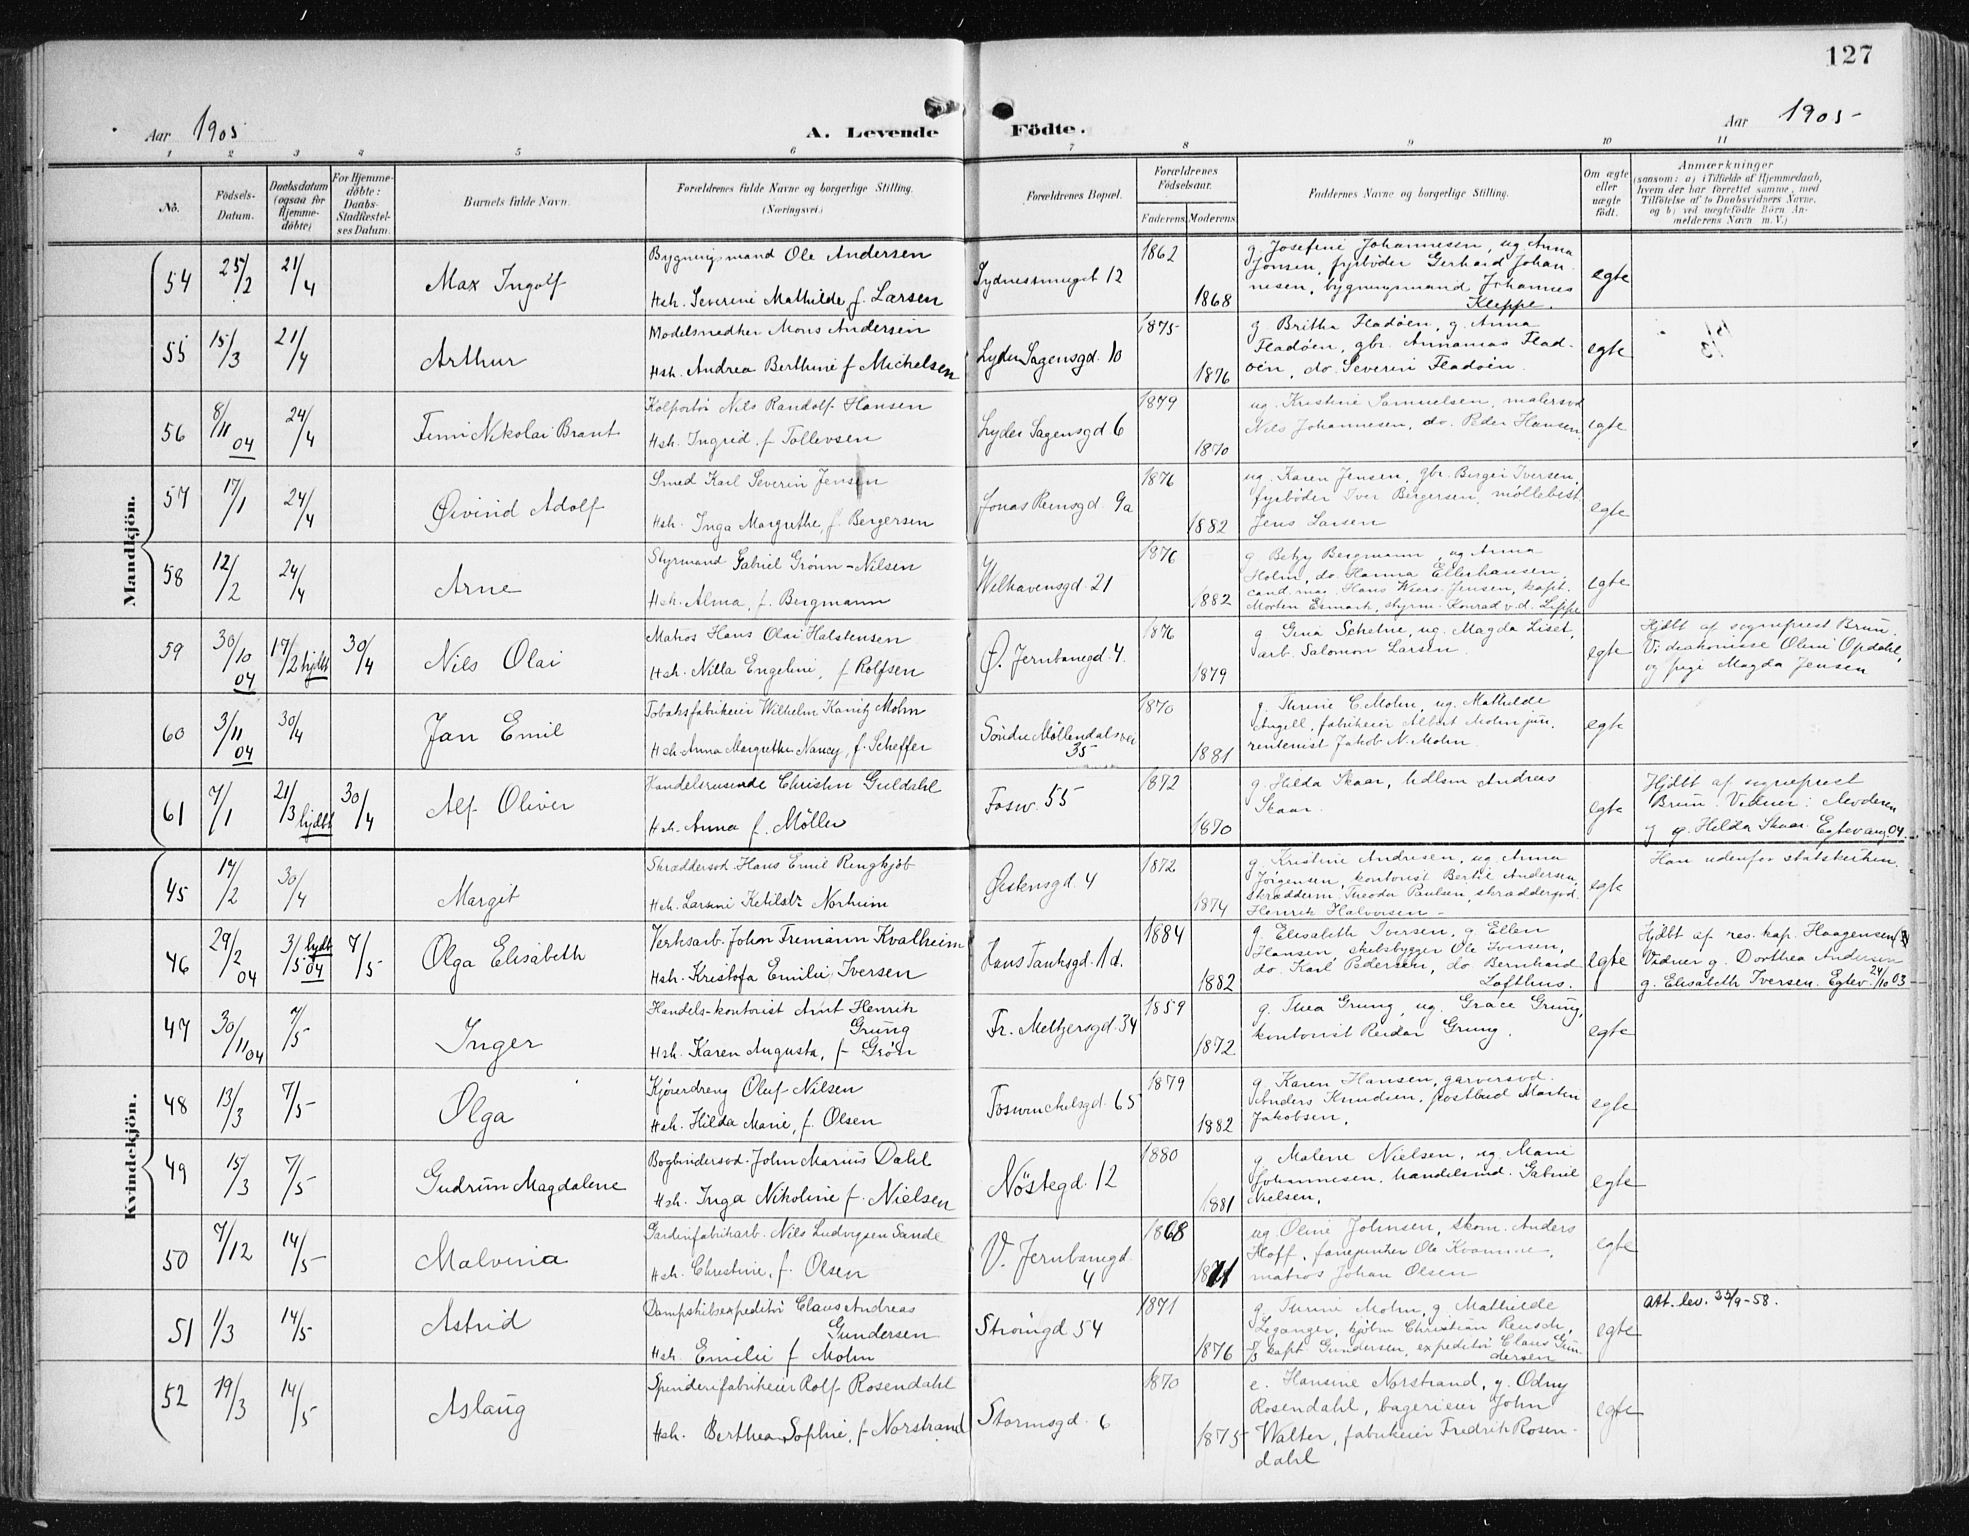 127
Aar 1905
A. Levende Födte.
Aar 1905-
1 2 3 4 5 6 7 8 9 10 11
No.
Födsels-Datum.
Daabsdatum (ogsaa for Hjemme-döbte)
For Hjemme-döbte: Daabs-Stadfæstel-ses Datum.
Barnets fulde Navn.
Forældrenes fulde Navne og borgerlige Stilling. (Næringsvei.)
Forældrenes Bopæl.
Forældrenes Födselsaar.
Faderens Moderens
Faddernes Navne og borgerlige Stilling.
Om ægte eller uægte födt.
Anmærkninger
(saasom: a) i Tilfælde af Hjemmedaab,
hvem der har forrettet samme, med
Tilföielse af to Daabsvidners Navne,
og b) ved uægtefödte Börn An-
melderens Navn m. V.)
Mandkjön.
54 25/2 21/4 Max Ingolf
Bygningsmand Ole Andersen
Hsh. Severine Mathilde f. Larsen
Sydnessmuget 12 1862 1868
g. Josefine Johannesen, ug. Anna
Jonsen, fyrböder Gerhard Johan-
nesen, bygningsmand Johannes
Kleppe.
egte
55 15/3 21/4 Arthur
Modelsnedker Mons Andersen
Hsh. Andrea Berthine f Michelsen
Lyder Sagensgd. 10 1875 1876
g. Britha Fladöen, g. Anna
Fladöen, gbr. Annanias Flad-
öen, do. Severin Fladöen.
egte
56 8/11 04 24/4 Finn Nikolai Brant
Kolportör Nils Randolf Hansen
Hsh. Ingrid, f Tollevsen
Lyder Sagensgd 6 1879 1870
ug. Kristine Samuelsen, malersvd
Nils Johannesen, do. Peder Hansen.
egte
57 17/1 24/4 Øivind Adolf
Smed Karl Severin Jensen
Hsh. Inga Margrethe, f. Bergersen
Jonas Reinsgd 9a 1876 1882
ug. Karen Jensen, gbr. Birger Iversen,
fyrböder Iver Bergersen, möllebest.
Jens Larsen
egte
58 12/2 24/4 Arne
Styrmand Gabriel Grönn-Nilsen
Hsh. Alma, f. Bergmann
Welhavensgd. 21 1876 1882
g. Betzy Bergmann, ug. Anna
Holm, do. Hanna Ellerhausen,
cand. mag. Hans Wiers-Jensen, kapt.
Morten Esmark, styrm. Konrad v.d. Lippe
egte
59 30/10 04 17/2 hjdbt 30/4 Nils Olai
Matros Hans Olai Halstensen
Hsh. Nilla Engeline, f Rolfsen
Ø. Jernbanegd. 4. 1876 1879
g. Gina Schelne, ug. Magda Liset,
arb. Salomon Larsen.
egte
Hjdbt af sogneprest Brun.
V: diakonisse Oline Opdahl,
og frøg. Magda Jensen
60 3/11 04 30/4 Jan Emil
Tobaksfabrikeier Wilhelm Kanitz Mohn
Hsh. Anna Margrethe Nancy, f. Scheffer
Söndre Möllendalsvei 35 1870 1881
g. Thrine C. Mohn, ug. Mathilde
Angell, fabrikeier Albert Mohn jun.
rentenist Jakob N. Mohn.
egte
61 7/1 21/3 hjdbt 30/4 Alf Oliver
Handelsreisende Christen Guldahl
Hsh. Anna f. Möller
Fosw. 55 1872 1870
g. Hilda Skaar, hdlsm Andreas
Skaar.
egte
Hjdbt af sogneprest
Brun. Vidner: Moderen
og g. Hilda Skaar. Egtev. aug. 04.
Kvindekjön.
45 14/2 30/4 Margit
Skræddersvd. Hans Emil Ringkjöb
Hsh. Larsine Ketilsdr Norheim
Øiskensgd. 4 1872 1874
g. Kristine Andresen, ug. Anna
Jörgensen, kontorist Bertel Andersen,
skrædderm. Theodor Paulsen, skræddersvd.
Henrik Halvorsen-
egte
Han udenfor statskirken.
46 29/2 04 3/5 hjdbt 04 7/5 Olga Elisabeth
Verksarb. John Tremann Kvalheim
Hsh. Kristofa Emilie Iversen
Hans Tanksgd. 1d. 1884 1882
g. Elisabeth Iversen, g. Ellen
Hansen, skibsbygger Ole Iversen,
do. Karl Pedersen, do. Bernhard
Lofthus.
egte
Hjdbt af res. kap. Haagensen
Vidner g. Dorthea Andersen
g. Elisabeth Iversen. Egtev. 24/10 03
47 30/11 04 7/5 Inger
Handels-kontorist Arnt Henrik
Grung
Hsh. Karen Augusta, f. Grön
Fr. Meltzersgd. 34 1859 1872
g. Thea Grung, ug. Grace Grung,
kontorist Reidar Grung.
egte
48 13/3 7/5 Olga
Kjöredreng Oluf Nilsen
Hsh. Hilda Marie, f. Olsen
Foswinckelsgd. 65 1879 1882
g. Karen Hansen, garversvd.
Anders Knudsen, postbud Martin
Jakobsen.
egte
49 15/3 7/5 Gudrun Magdalene
Bogbindersvd. John Marius Dahl
Hsh. Inga Nikoline f. Nielsen
Nöstegd. 12 1880 1881
g. Malene Nielsen, ug. Marie
Johannesen, handelsmd. Gabriel
Nielsen.
egte
50 7/12 14/5 Malvina
Gardinfabrikarb. Nils Ludvigsen Sande
Hsh. Christine, f. Olsen
V. Jernbanegd. 4 1868 1871
ug. Oline Johnsen, skom. Anders
Hoff, Ole Kvamme,
matros Johan Olsen
egte
51 1/3 14/5 Astrid
Dampskibsexpeditör Claus Andreas
Gundersen
Hsh. Emilie f Mohn
Strömgd 54 1871 1876
g. Thrine Mohn, g. Mathilde
Leganger, kjöbm Christian Reusch,
kapt. Gundersen, expeditör Claus Gun-
dersen
egte
att. lev. /9-58.
52 19/3 14/5 Aslaug
Spinderifabrikeier Rolf Rosendahl
Hsh. Berthea Sophie, f. Norstrand
Stormsgd. 6 1870 1875
e. Hansine Norstrand, g. Odny
Rosendahl, bagerieier John
Walter, fabrikeier Fredrik Rosen-
dahl
egte